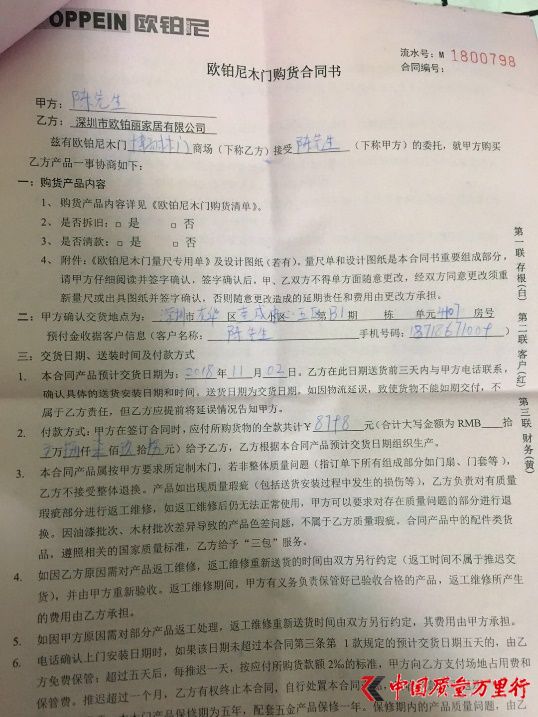 OPPEIN 欧铂尼
流水号：M 1800798
欧铂尼木门购货合同书
合同编号：
甲方：陈先生
乙方：深圳市欧铂丽家居有限公司
兹有欧铂尼木门 商场（下称乙方）接受 陈先生 （下称甲方）的委托，就甲方购买
乙方产品一事协商如下：
一：购货产品内容
1、 购货产品内容详见《欧铂尼木门购货清单》。
2、 是否拆旧：□ 是 □ 否
3、 是否清款：□ 是 □ 否
4、 附件：《欧铂尼木门量尺专用单》及设计图纸（若有）。量尺单和设计图纸是本合同书重要组成部分，
请甲方仔细阅读并签字确认，签字确认后，甲、乙双方不得单方面随意更改，经双方同意更改须重
新量尺或出具图纸并签字确认，否则随意更改造成的延期责任和费用由更改方承担。
二：甲方确认交货地点为：深圳市 龙华 区 小区 B1 期 栋 单元 4407 房号
预付金收据客户信息（客户名称： 陈先生 手机号码：18718671009）
三：交货日期、送装时间及付款方式
1. 本合同产品预计交货日期为：2018 年 11 月 02 日。乙方在此日期送货前三天内与甲方电话联系，
确认具体的送货安装日期和时间。送货日期为交货日期。如因物流延误，致使货物不能如期交付，不
属于乙方责任，但乙方应提前将延误情况告知甲方。
2. 付款方式：甲方在签订合同时，应付所购货物的全款共计￥ 8798 元（合计大写金额为 RMB 拾
万 捌 仟 佰 拾 元）给予乙方，乙方根据本合同产品预计交货日期组织生产。
3. 本合同产品属按甲方要求所定制木门，若非整体质量问题（指订单下所有组成部分如门扇、门套等），
乙方不接受整体退换。产品如出现质量瑕疵（包括送货安装过程中发生的损伤等），乙方负责对有质量
瑕疵部分进行返工维修，如返工维修后仍无法正常使用，甲方可以要求对存在质量问题的部分进行退
换。因油漆批次、木材批次差异导致的产品色差问题，不属于乙方质量瑕疵。合同产品中的配件类货
品，遵照相关的国家质量标准，乙方给予“三包”服务。
4. 如因乙方原因需对产品返工维修，返工维修重新送货的时间由双方另行约定（返工时间不属于推迟交
货），并由甲方重新验收。返工维修期间，甲方有义务负责保管好已验收合格的产品，返工维修所产生
的费用由乙方承担。
5. 如因甲方原因需对部分产品返工处理，返工维修重新送货时间由双方另行约定，其费用由甲方承担。
6. 电话确认上门安装日期时，如果该日期未超过本合同第三条第 1 款规定的预计交货日期五天的，由乙
方免费保管；超过五天后，每推迟一天，按应付所购货款额 2‰的标准，甲方向乙方支付场地占用费和
保管费。推迟超过一个月，乙方有权终止本合同，自行处置本合同
木门产品保修期为五年，配套五金产品保修一年。保修期内的产品质量问题，由乙
第一联 存根(白)
第二联 客户(红)
第三联 财务(黄)
中国质量万里行